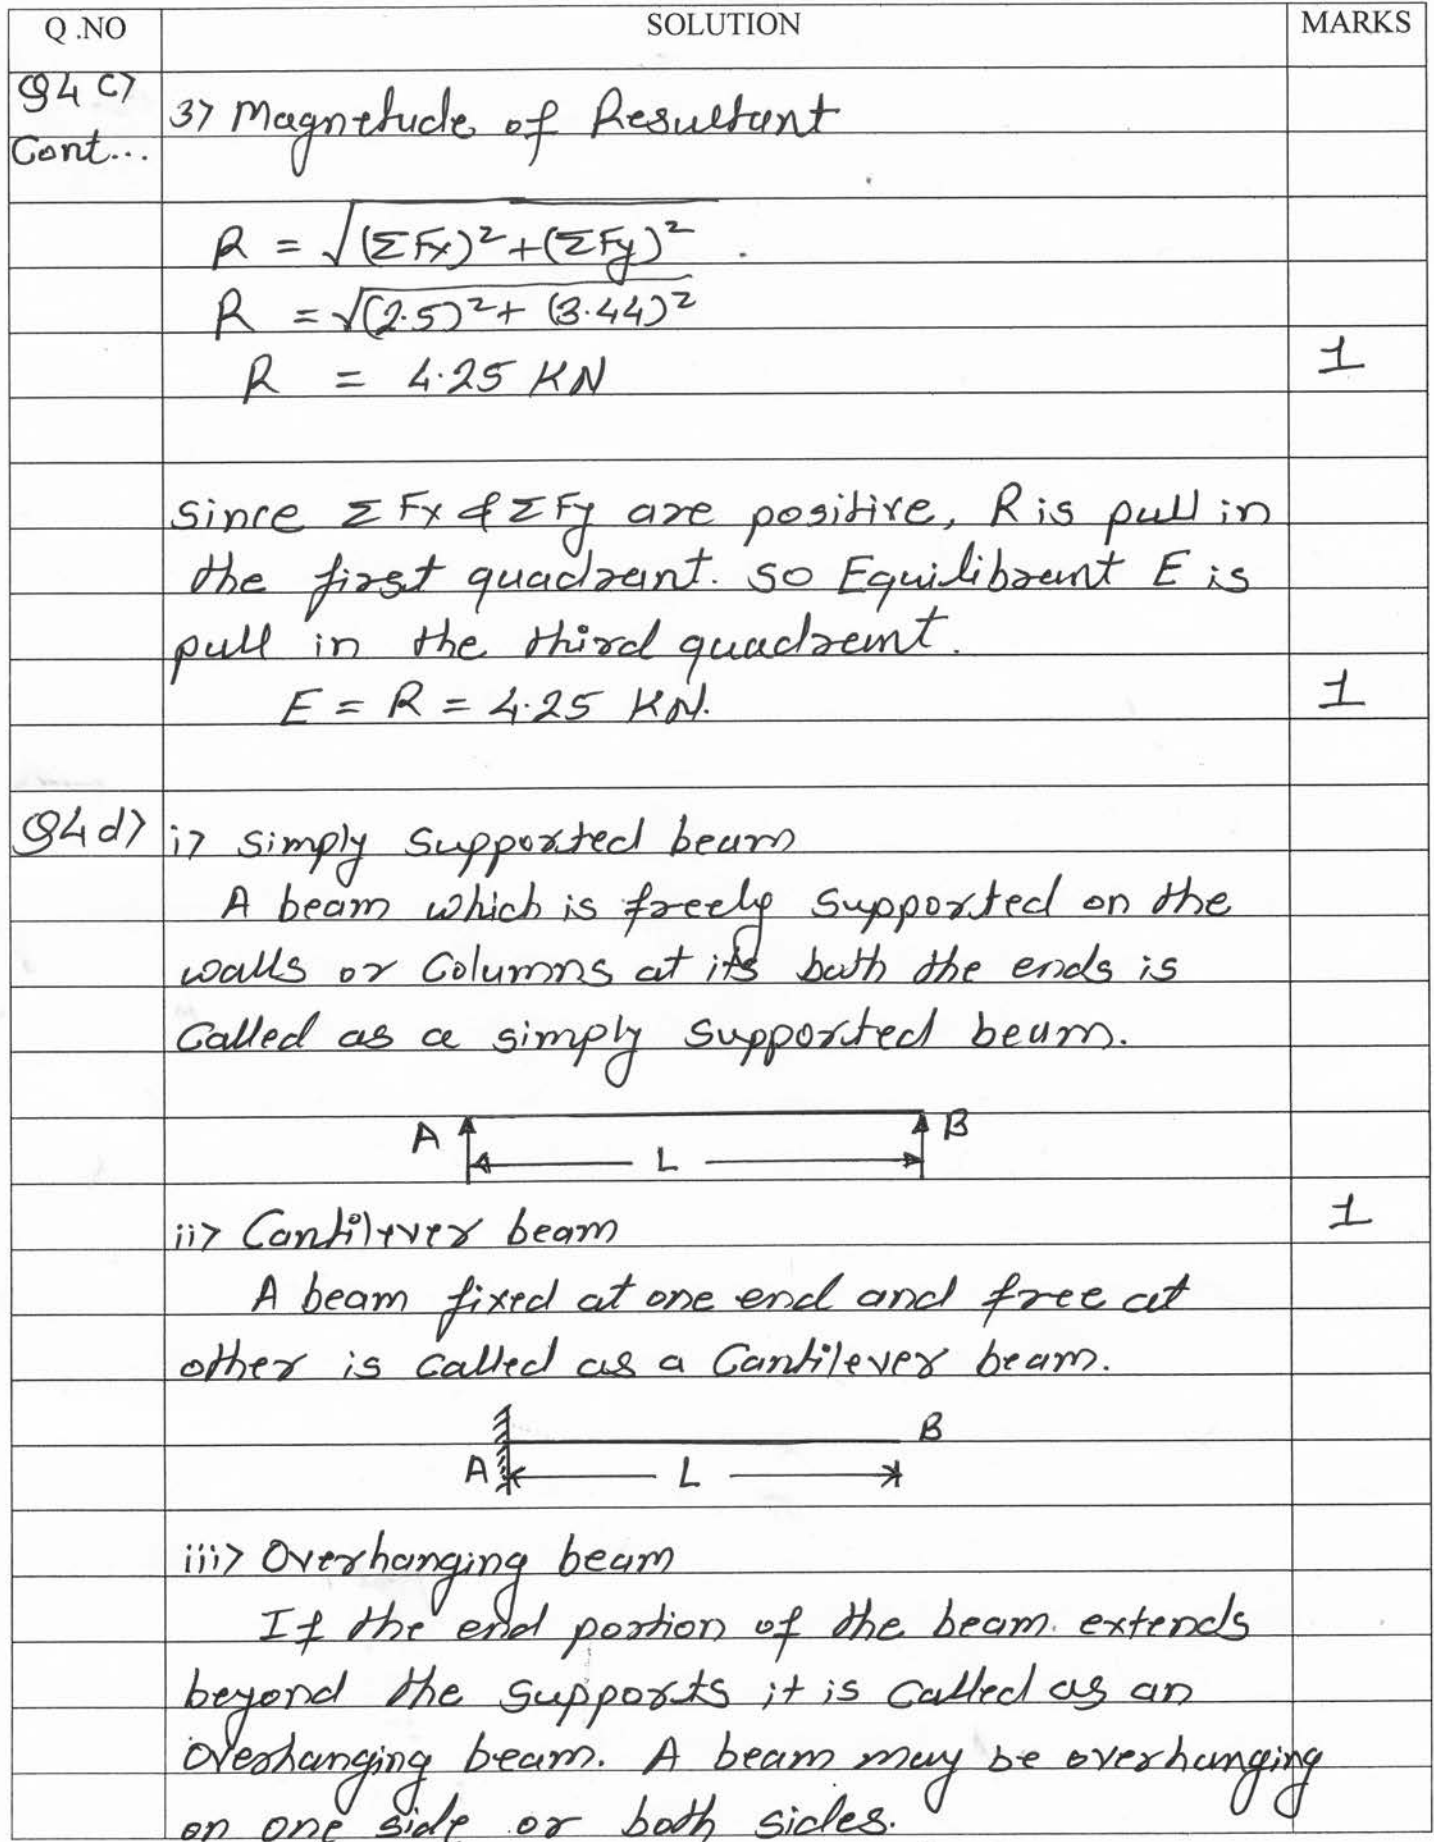 Q .NO SOLUTION MARKS
Q4 c)
3) Magnetude of Resultant
Cont...
R = √(ΣFx)²+(ΣFy)² .
R = √(2.5)²+ (3.44)²
R = 4.25 KN 1
since ΣFx & ΣFy are positive, R is pull in
the first quadrant. so Equilibrant E is
pull in the third quadrant.
E = R = 4.25 KN. 1
Q4 d) i) simply supported beam
A beam which is freely supported on the
walls or Columns at its both the ends is
Called as a simply supported beam.
A B
L
ii) Cantilever beam 1
A beam fixed at one end and free at
other is called as a Cantilever beam.
B
A L
iii) Overhanging beam
If the end portion of the beam. extends
beyond the supports it is called as an
overhanging beam. A beam may be overhanging
on one side or both sides.